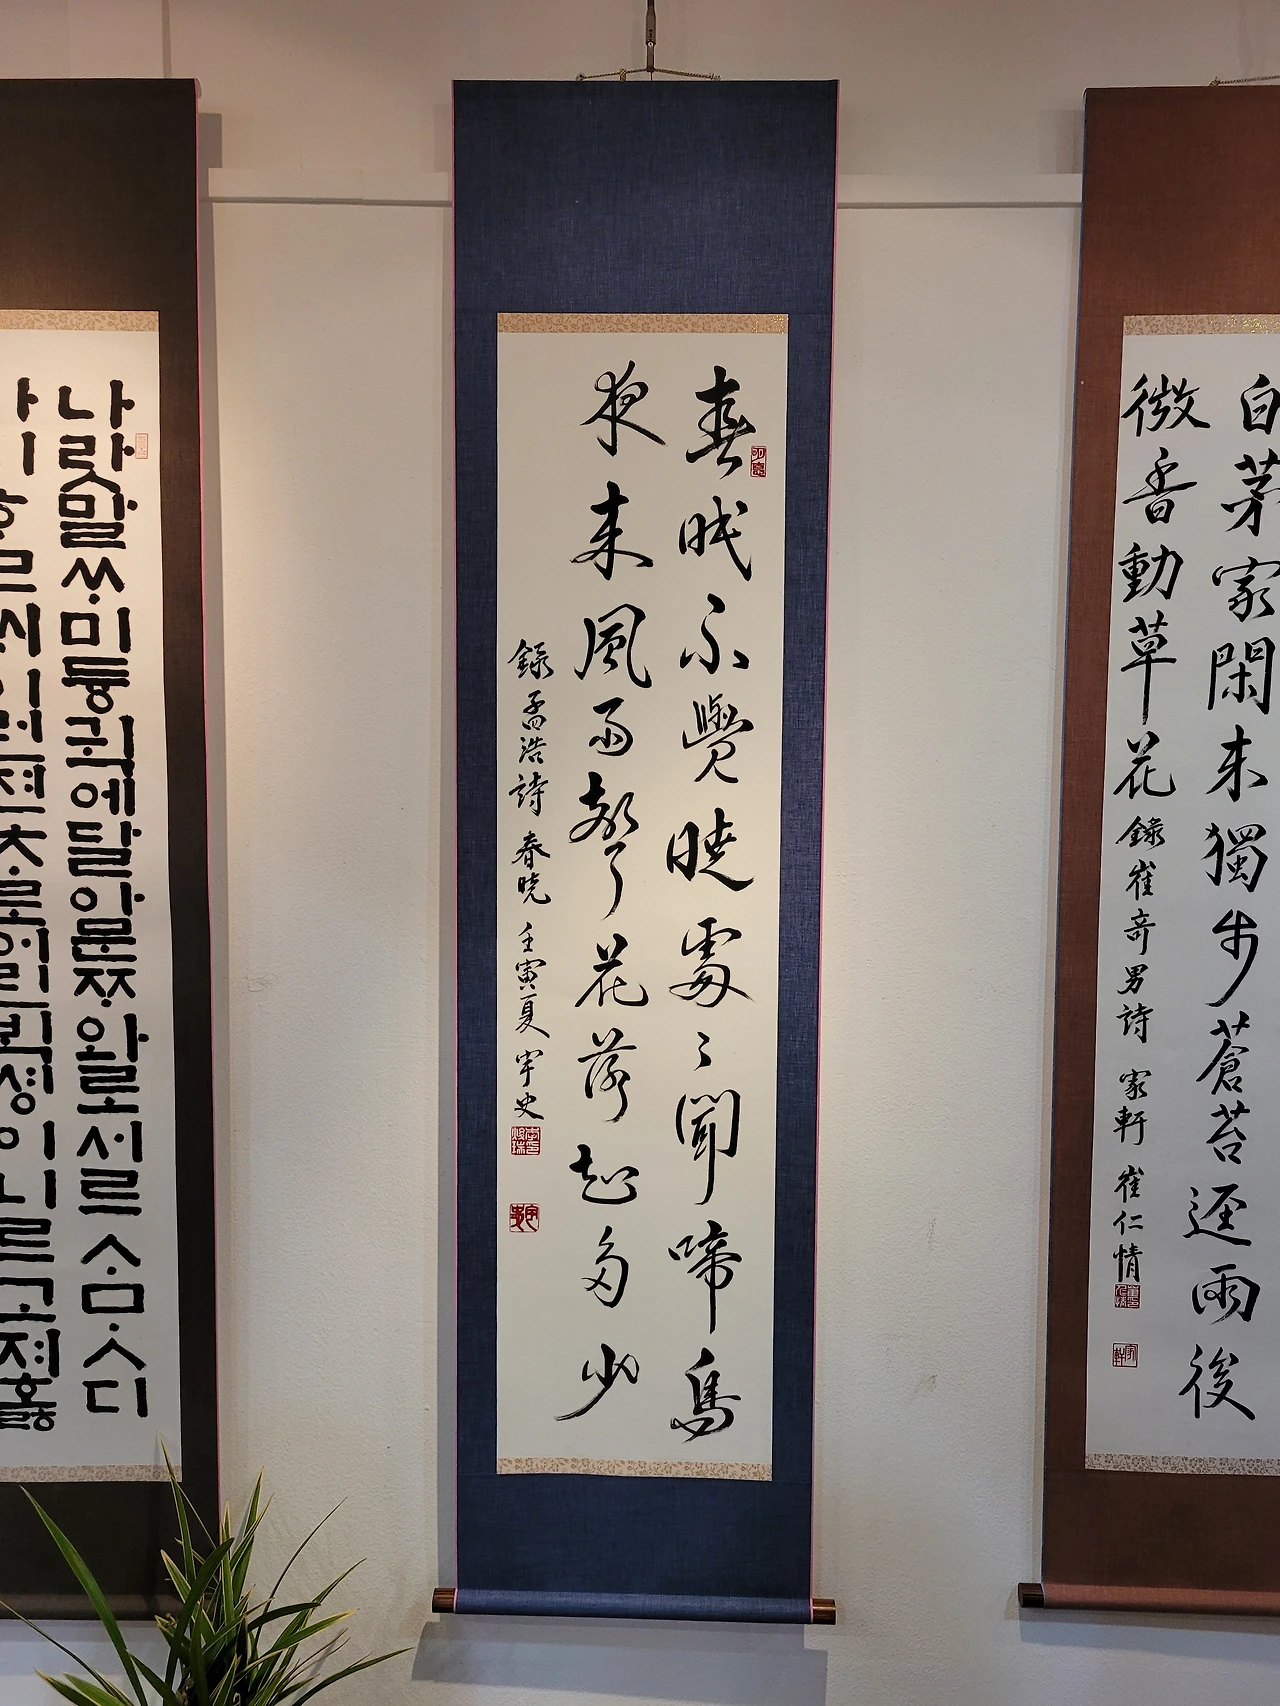 白茅家閑来獨步蒼苔逕雨後
微香動草花 錄崔奇男詩 家軒 崔仁情
春眠不覺曉處〻聞啼鳥
夜来風雨聲花落知多少
錄孟浩詩 春曉 壬寅夏 宇史
나랏말ᄊᆞ미듕귁에달아문ᄍᆞ와로서르ᄉᆞᄆᆞᆺ디
아니ᄒᆞᆯᄊᆡ이런젼ᄎᆞ로어린ᄇᆡᆨ셩이니르고져호ᇙ